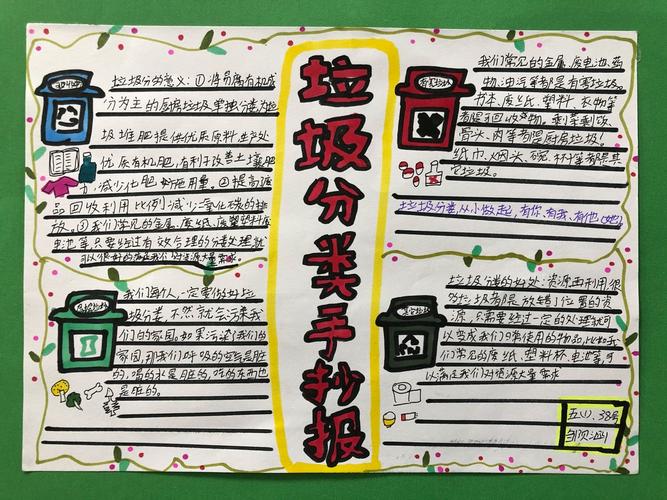 垃圾分类手抄报
垃圾分类意义：①将易腐有机成
分为主的厨房垃圾单独分类为垃
圾堆肥提供优质原料，生产处
优质有机肥，有利于改善土壤肥
力，减少化肥施用量。②提高废
品回收利用比例，减少二氧化碳的排
放。③我们常见的金属、废纸、废塑料、废
电池等，只要经过有效合理的分类处理就
可以很好的
我们常见的金属、废电池、药
物、油漆等都是有害垃圾。
书本、废纸、塑料、衣物等
都属可回收物，剩菜剩饭、
骨头、肉等都属厨房垃圾，
纸巾、烟头、碗、杯等都属其
它垃圾。
垃圾分类，从小做起，有你、有我、有他（她）
我们每个人，一定要做好垃
圾分类，不然就会污染我
们的家园。如果污染了我们的
家园，那我们呼吸的空气是脏
的，喝的水是脏的，吃的东西也
是脏的。
垃圾分类的好处：资源再利用，很
多垃圾都是放错了位置的资
源，只需要经过一定的处理就可
以变成我们日常使用的物品，比如我
们常见的废纸、塑料杯、电池等，可
以满足我们对资源大量需求
有害垃圾
五(1)、38号